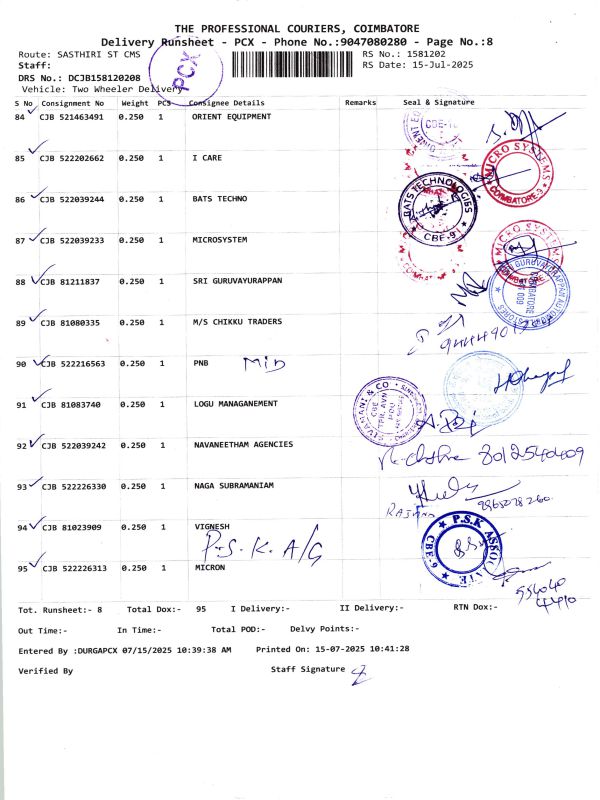 THE PROFESSIONAL COURIERS, COIMBATORE
Delivery Runsheet - PCX - Phone No.:9047080280 - Page No.:8
Route: SASTHIRI ST CMS RS No.: 1581202
Staff: RS Date: 15-Jul-2025
PCX
DRS No.: DCJB158120208
Vehicle: Two Wheeler Delivery
S No Consignment No Weight PCS Consignee Details Remarks Seal & Signature
84 CJB 521463491 0.250 1 ORIENT EQUIPMENT
85 CJB 522202662 0.250 1 I CARE
MICRO SYSTEMS COIMBATORE
86 CJB 522039244 0.250 1 BATS TECHNO
BATS TECHNOLOGIES CBE-9
87 CJB 522039233 0.250 1 MICROSYSTEM
88 CJB 81211837 0.250 1 SRI GURUVAYURAPPAN
89 CJB 81080335 0.250 1 M/S CHIKKU TRADERS
90 CJB 522216563 0.250 1 PNB
91 CJB 81083740 0.250 1 LOGU MANAGANEMENT
92 CJB 522039242 0.250 1 NAVANEETHAM AGENCIES
8012540409
93 CJB 522226330 0.250 1 NAGA SUBRAMANIAM
94 CJB 81023909 0.250 1 VIGNESH
P.S.K. A/G
P.S.K ASSOCIATE CBE-6
95 CJB 522226313 0.250 1 MICRON
Tot. Runsheet:- 8 Total Dox:- 95 I Delivery:- II Delivery:- RTN Dox:-
Out Time:- In Time:- Total POD:- Delvy Points:-
Entered By :DURGAPCX 07/15/2025 10:39:38 AM Printed On: 15-07-2025 10:41:28
Verified By Staff Signature